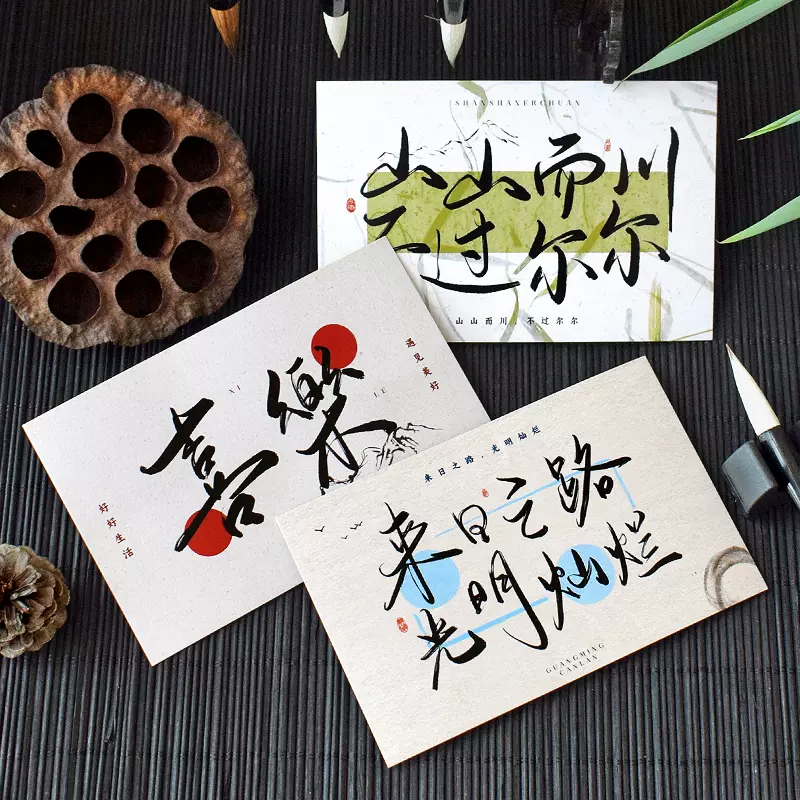 SHANSHANERCHUAN
山山而川
不过尔尔
山山而川,不过尔尔
遇见美好
XI LE
喜樂
好好生活
来日之路,光明灿烂
来日之路
光明灿烂
GUANGMING
CANLAN